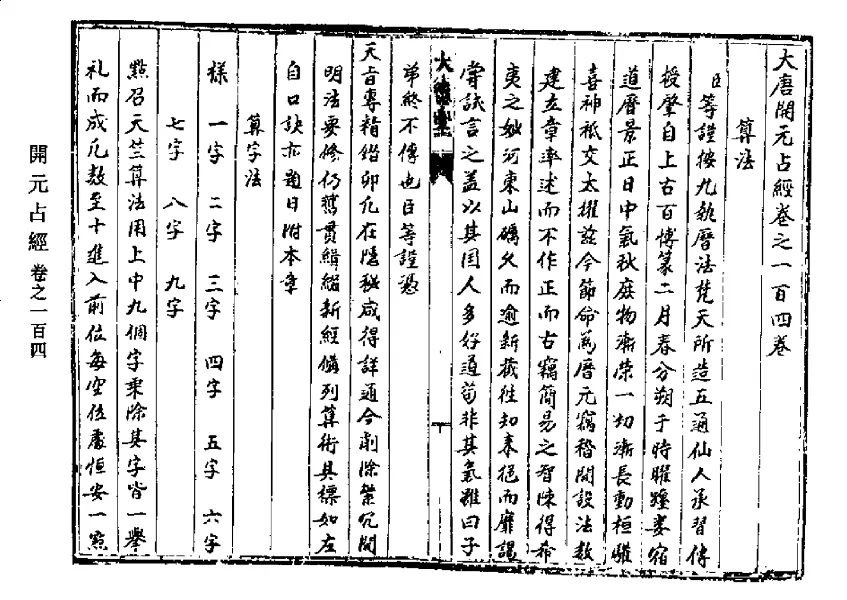 大唐開元占經卷之一百四卷
算法
臣等謹按九執曆法梵天所造五通仙人承習傳
授肇自上古百博義二月春分朔于時曜躔婁宿
道曆景正日中氣秋庭物漸榮一切漸長動植懽
喜神祇交太擢茲令節命為曆元竊稽開設法數
建立章率述而不作正而古竊簡易之智陳得希
夷之妙河東山礪久而逾新截往知來絕而靡謁
嘗試言之蓋以其国人多好道苟非其氣雖曰子
弟終不傳也臣等謹憑
天旨專精鑽卯凡在隱秘咸得詳通今削除繁冗開
明法要修仍舊貫緝綴新經備列算術具標如左
自口訣亦題目附本章
算字法
樣 一字 二字 三字 四字 五字 六字
七字 八字 九字
點召天竺算法用上中九個字乘除其字皆一舉
札而成凡數至十進入前位每空位處恒安一點
開元占經 卷之一百四